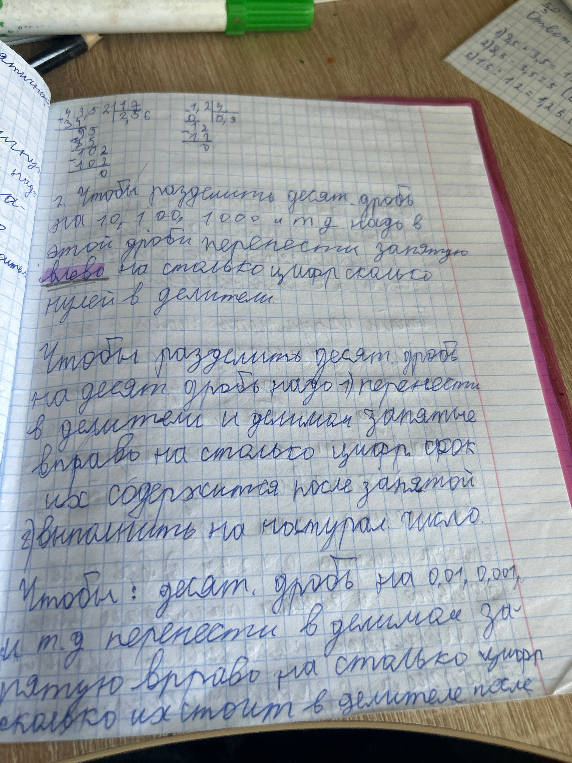 43,52 | 17
34 | 2,56
95
85
102
102
0
1,2 | 4
0 | 0,3
12
12
0
2. Чтобы разделить десят. дробь
на 10, 100, 1000 и т.д надо в
этой дроби перенести запятую
влево на столько цифр сколько
нулей в делители
Чтобы разделить десят. дробь
на десят. дробь надо 1) перенести
в делители и делимом запятые
вправо на столько цифр
их содержится после запятой
2) выполнить на натурал число.
Чтобы : десят. дробь на 0,01, 0,001,
и т.д перенести в делимом за-
пятую вправо на столько цифр
сколько их стоит в делителе после
Ответ